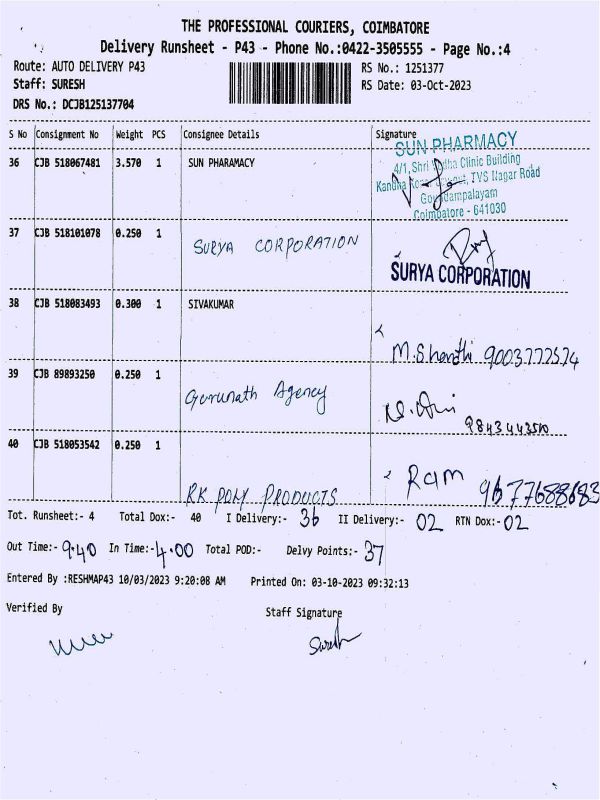 THE PROFESSIONAL COURIERS, COIMBATORE
Delivery Runsheet - P43 - Phone No.:0422-3505555 - Page No.:4
Route: AUTO DELIVERY P43 RS No.: 1251377
Staff: SURESH RS Date: 03-Oct-2023
DRS No.: DCJB125137704
S No Consignment No Weight PCS Consignee Details Signature
36 CJB 518067481 3.570 1 SUN PHARAMACY
SUN PHARMACY
4/1, Shri Clinic Building
TVS Nagar Road
Coimbatore - 641030
37 CJB 518101078 0.250 1 SURYA CORPORATION
SURYA CORPORATION
38 CJB 518083493 0.300 1 SIVAKUMAR
M. Shanthi 9003772574
39 CJB 89893250 0.250 1 Gurunath Agency
9843443510
40 CJB 518053542 0.250 1 RK POLY PRODUCTS
Ram 9677688683
Tot. Runsheet:- 4 Total Dox:- 40 I Delivery:- 36 II Delivery:- 02 RTN Dox:- 02
Out Time:- 9.40 In Time:- 4.00 Total POD:- Delvy Points:- 37
Entered By :RESHMAP43 10/03/2023 9:20:08 AM Printed On: 03-10-2023 09:32:13
Verified By Staff Signature
Suresh